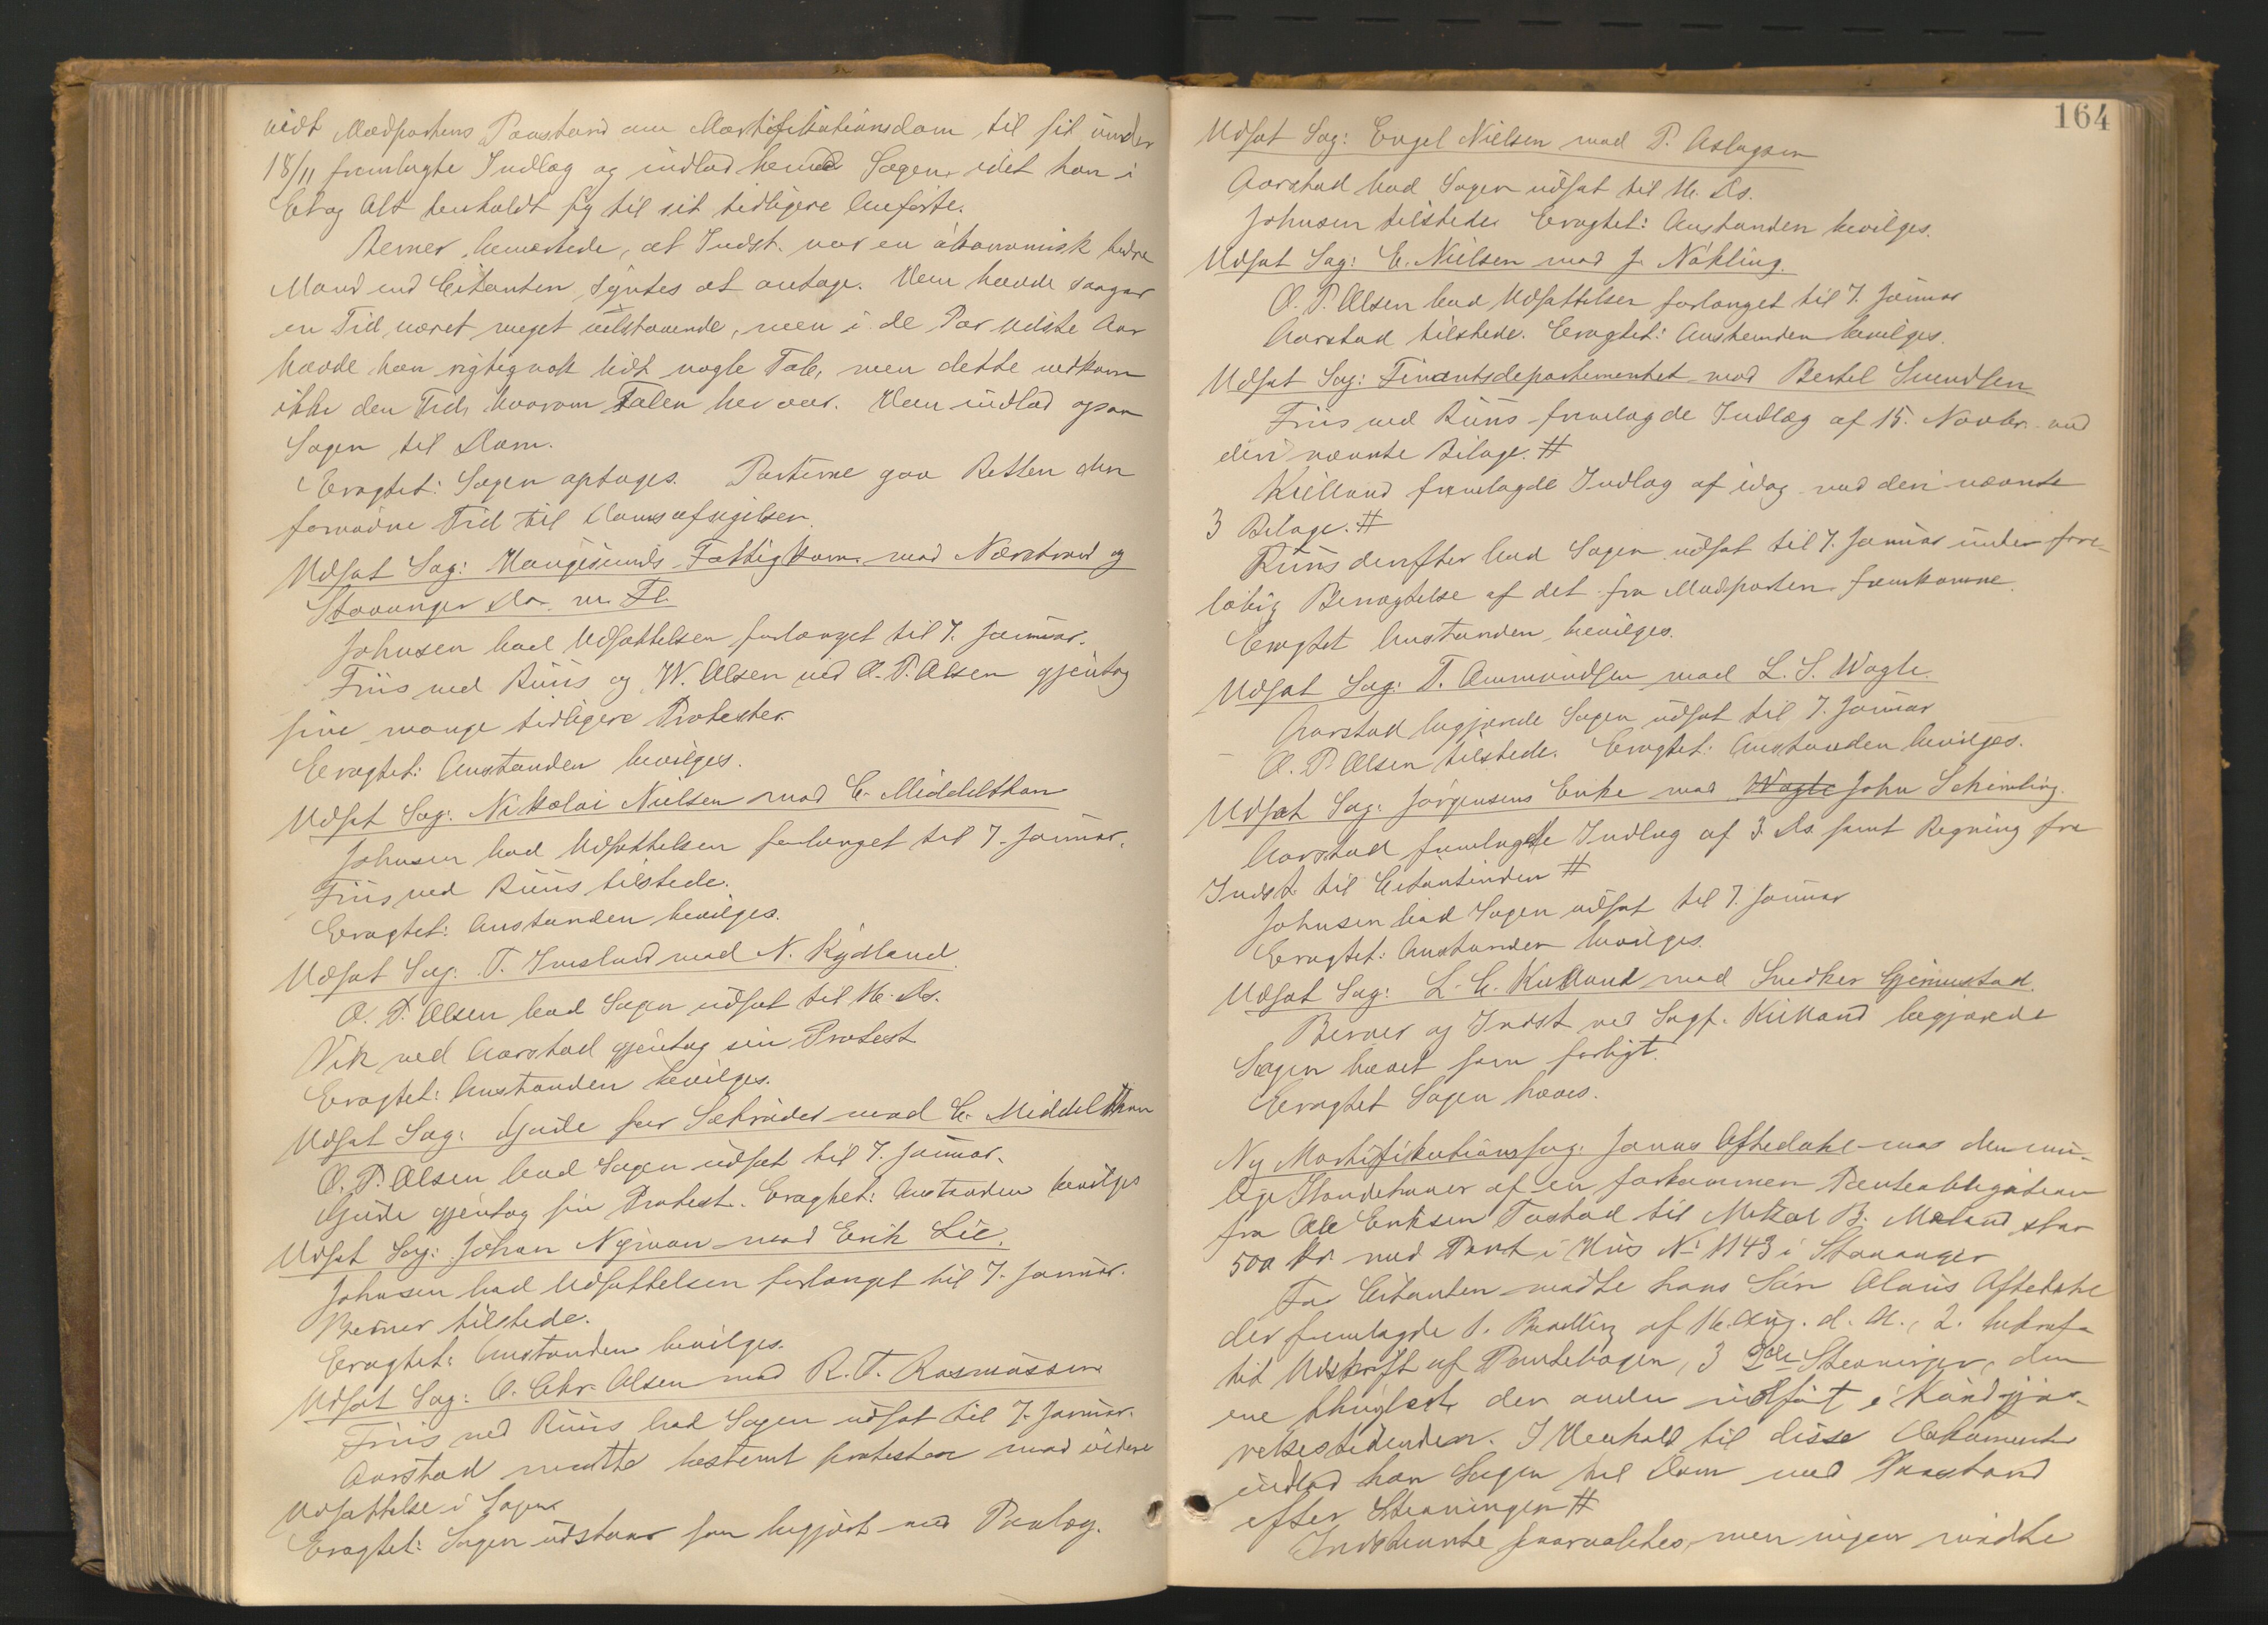 vidt Modpartens Paastand om Mortifikationsdom til sit under
18/11 fremlagte Indlæg og indlod hermed Sagen, idet han i
Et og Alt henholdt sig til sit tidligere Anførte.
Berner bemærkede, at Indst. var en økonomisk bedre
Mand end Citanten syntes at antage. Han havde saagar
en Tid været meget velstaaende, men i de Par sidste Aar
havde han rigtignok lidt nogle Tab, men dette vedkom
ikke den Tid, hvorom Talen her var. Han indlod ogsaa
Sagen til Dom.
Eragtet: Sagen optages. Parterne gaa Retten den
fornødne Tid til Domsafsigelsen.
Udsat Sag: Haugesunds Fattigkom. mod Nærstrand og
Stavanger do. m. Fl.
Johnsen bad Udsættelsen forlænget til 7. Januar.
Friis ved Ruus og W. Olsen ved O. P. Olsen gjentog
sine mange tidligere Protester.
Eragtet: Anstanden bevilges.
Udsat Sag: Nikolai Nielsen mod C. Middelthon
Johnsen bad Udsættelsen forlænget til 7. Januar.
Friis ved Ruus tilstede.
Eragtet: Anstanden bevilges.
Udsat Sag: T. Imsland mod N. Rydland.
O. P. Olsen bad Sagen udsat til 16. ds.
Vik ved Aarstad gjentog sin Protest
Eragtet: Anstanden bevilges.
Udsat Sag: Gjude for Schrøder mod C. Middelthon
O. P. Olsen bad Sagen udsat til 7. Januar.
Gjude gjentog sin Protest. Eragtet: Anstanden bevilges
Udsat Sag: Johan Nyman mod Erik Lie.
Johnsen bad Udsættelsen forlænget til 7. Januar.
Berner tilstede.
Eragtet: Anstanden bevilges.
Udsat Sag: O. Chr. Olsen mod R. T. Rasmussen
Friis ved Ruus bad Sagen udsat til 7. Januar.
Aarstad maatte bestemt protestere mod videre
Udsættelse i Sagen
Eragtet: Sagen udstaar som begjært med Paalæg.
164
Udsat Sag: Engel Nielsen mod P. Aslagsen
Aarstad bad Sagen udsat til 16. ds.
Johnsen tilstede. Eragtet: Anstanden bevilges.
Udsat Sag: C. Nielsen mod J. Nøkling.
O. P. Olsen bad Udsættelsen forlænget til 7. Januar
Aarstad tilstede. Eragtet: Anstanden bevilges.
Udsat Sag: Finantsdepartementet mod Bertel Svendsen
Friis ved Ruus fremlagde Indlæg af 15. Novbr. med
deri nævnte Bilage. #
Kielland fremlagde Indlæg af idag med deri nævnte
3 Bilage. #
Ruus derefter bad Sagen udsat til 7. Januar under fore-
løbig Benægtelse af det fra Modparten fremkomne.
Eragtet Anstanden bevilges.
Udsat Sag: T. Ammundsen mod L. S. Wagle.
Aarstad begjærede Sagen udsat til 7. Januar
O. P. Olsen tilstede. Eragtet: Anstanden bevilges.
Udsat Sag: Jørgensens Enke mod Wagle John Scheimling.
Aarstad fremlagde Indlæg af 3. ds. samt Regning fra
Indst. til Citantinden #
Johnsen bad Sagen udsat til 7. Januar
Eragtet: Anstanden bevilges.
Udsat Sag: L. C. Kielland mod Snedker Gjerumstad.
Berner og Indst. ved Sagf. Kielland begjærede
Sagen hævet som forligt.
Eragtet Sagen hæves.
Ny Mortifikationssag: Jonas Aftedahl mod den mu-
lige Ihændehaver af en forkommen Panteobligation
fra Ole Eriksen Tastad til Mikal B. Meland stor
500 Kr. med Pant i Hus No 1143 i Stavanger
For Citanten mødte hans Søn Olaus Aftedahl
der fremlagde 1. Bevilling af 16. Aug. d. A., 2. bekræf-
tet Udskrift af Pantebogen, 3 2de Stevninger, den
ene thinglæst, den anden indført i Kundgjø-
relsestidenden. I Henhold til disse Dokumenter
indlod han Sagen til Dom med Paastand
efter Stevningen #
Indstevnte paaraabtes, men ingen mødte